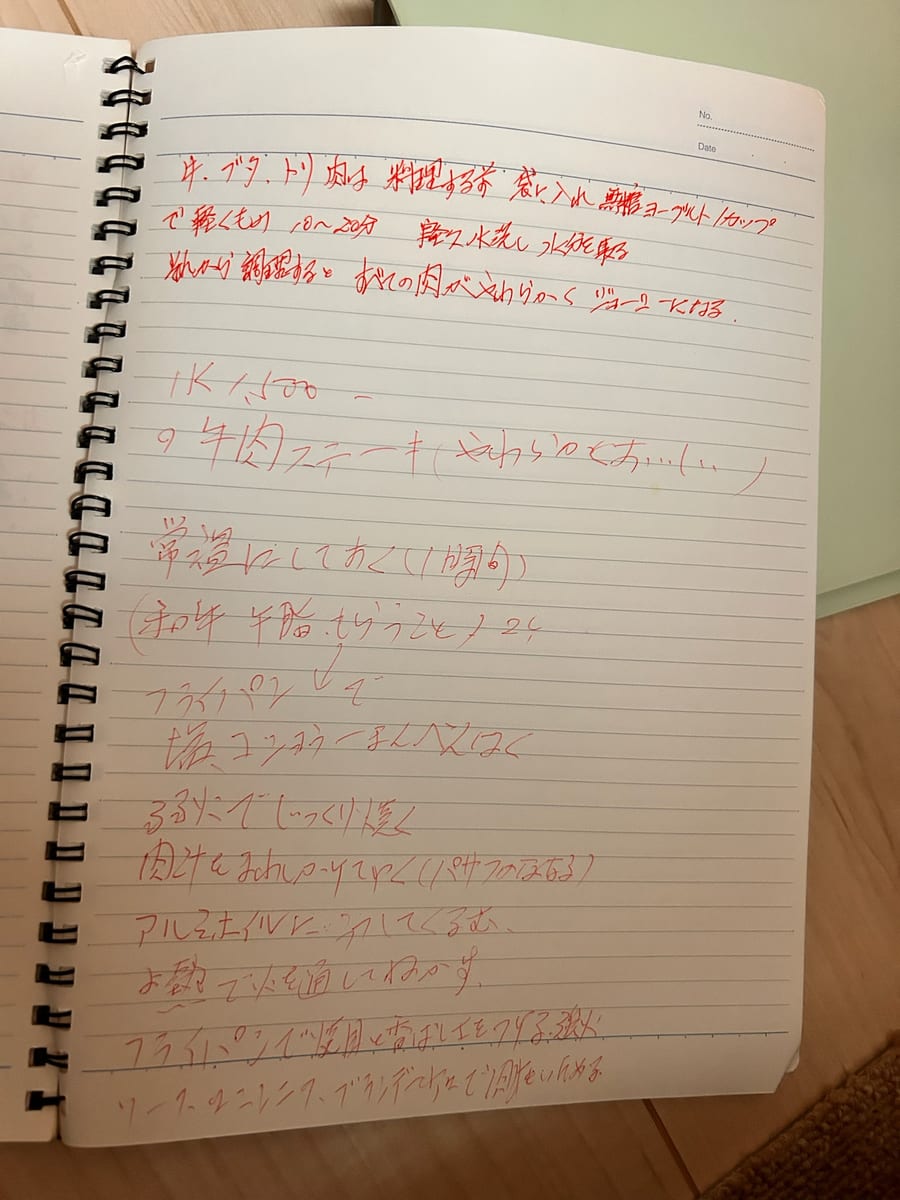 No.
Date
牛、ブタ、トリ肉は 料理する前 袋に入れ 無糖ヨーグルト1カップ
で軽くもみ 10〜20分 軽く水洗し 水分を取る
それから調理すると すべての肉がやわらかく ジューシーになる.
1K 1,500 -
の牛肉ステーキ(やわらかくお…し…)
常温にしておく(1時間)
(和牛 牛脂.もらうこと) 2ケ
フライパン で
塩、コショウーまんべんなく
弱火でじっくり焼く
肉汁を まわしかけてやく(パサつかなくなる)
アルミホイルに うつしてくるむ、
よ熱で火を通してねかす.
フライパンで焼目と香ばしさをつける.強火
ソース.ニンニク、ブランデー で